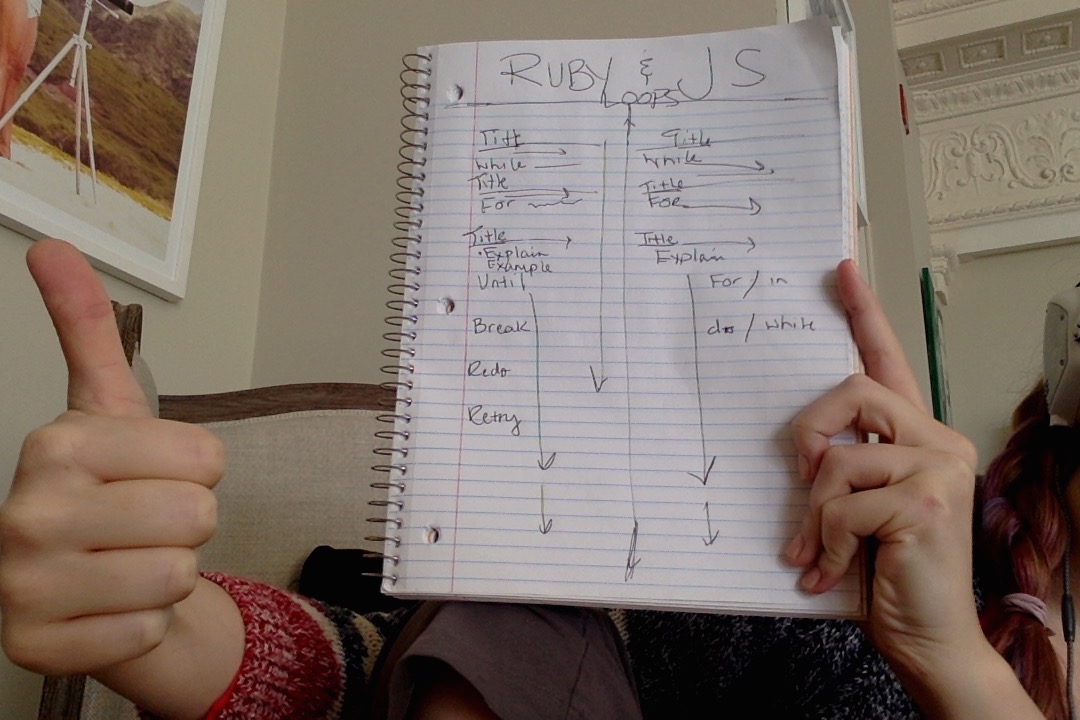 RUBY & JS
LOOPS
Title
While
Title
For
Title
• Explain
Example
Until
Break
Redo
Retry
Title
While
Title
For
Title
Explain
For / in
do / while